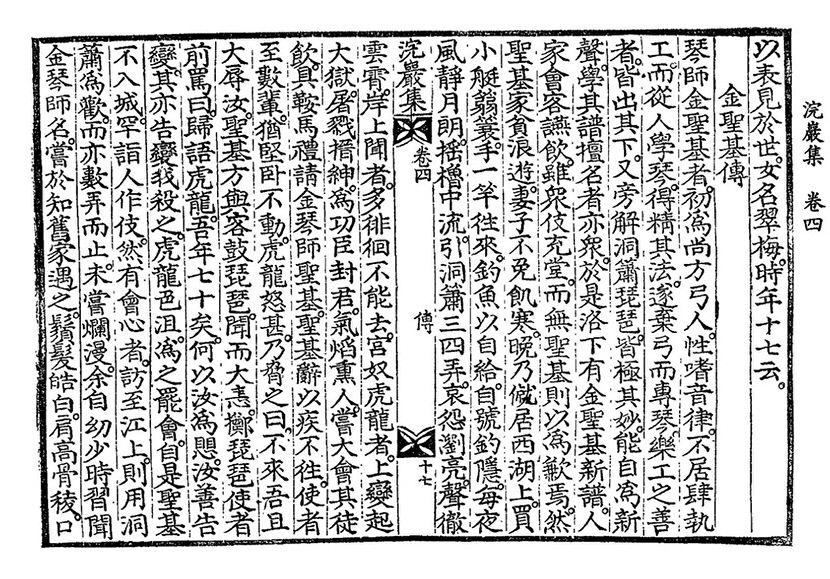 浣巖集 卷四
以表見於世。女名翠梅。時年十七云。
金聖基傳
琴師金聖基者。初爲尚方弓人。性嗜音律。不居肆執
工而從人學琴。得精其法。遂棄弓而專琴。樂工之善
者。皆出其下。又旁解洞簫琵琶。皆極其妙。能自爲新
聲。學其譜擅名者亦衆。於是洛下有金聖基新譜。人
家會客讌飮。雖衆伎充堂。而無聖基則以爲歉焉。然
聖基家貧浪遊。妻子不免飢寒。晚乃僦居西湖上。買
小艇篛簑。手一竿往來。釣魚以自給。自號釣隱。每夜
風靜月朗。搖櫓中流。引洞簫三四弄。哀怨瀏亮。聲徹
浣巖集 卷四 傳 十七
雲霄。岸上聞者。多徘徊不能去。宮奴虎龍者。上變起
大獄。屠戮搢紳。爲功臣封君。氣焰熏人。嘗大會其徒
飮。具鞍馬禮請金琴師聖基。聖基辭以疾不往。使者
至數輩。猶堅卧不動。虎龍怒甚。乃脅之曰。不來吾且
大辱汝。聖基方與客鼓琵琶。聞而大恚。擲琵琶使者
前罵曰。歸語虎龍。吾年七十矣。何以汝爲懼。汝善告
變。其亦告變我殺之。虎龍色沮。爲之罷會。自是聖基
不入城。罕詣人作伎。然有會心者。訪至江上。則用洞
簫爲歡。而亦數弄而止。未嘗爛漫。余自幼少時習聞
金琴師名。嘗於知舊家遇之。鬚髮皓白。肩高骨稜。口